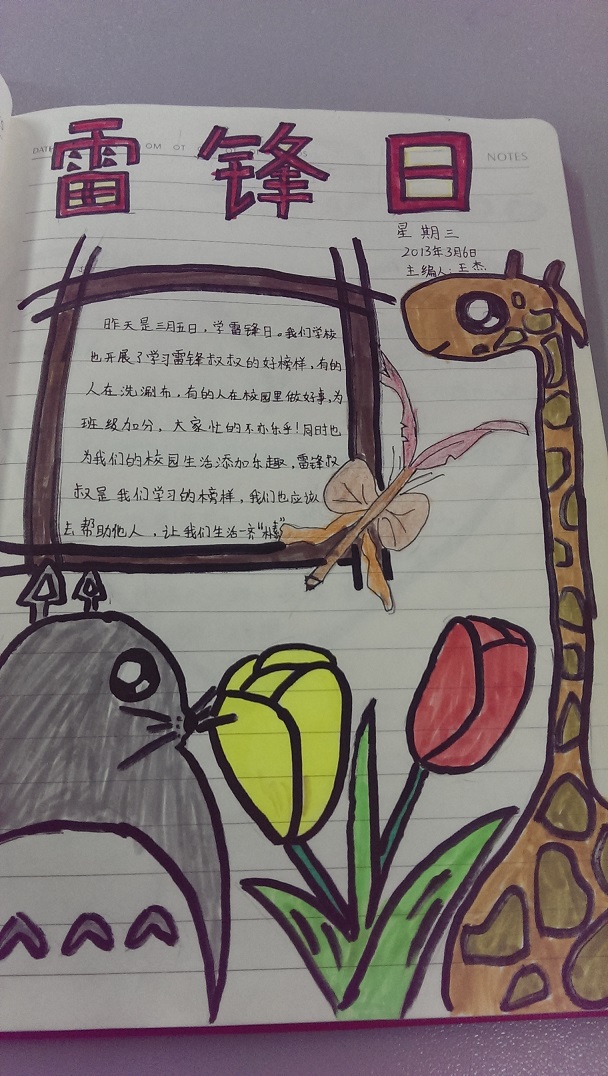 雷锋日
NOTES
星期三
2013年3月6日
主编人:王杰
昨天是三月五日，学雷锋日。我们学校
也开展了学习雷锋叔叔的好榜样，有的
人在洗涮布，有的人在校园里做好事，为
班级加分，大家忙的不亦乐乎！同时也
为我们的校园生活添加乐趣，雷锋叔
叔是我们学习的榜样，我们也应该
去帮助他人，让我们生活一齐"精"